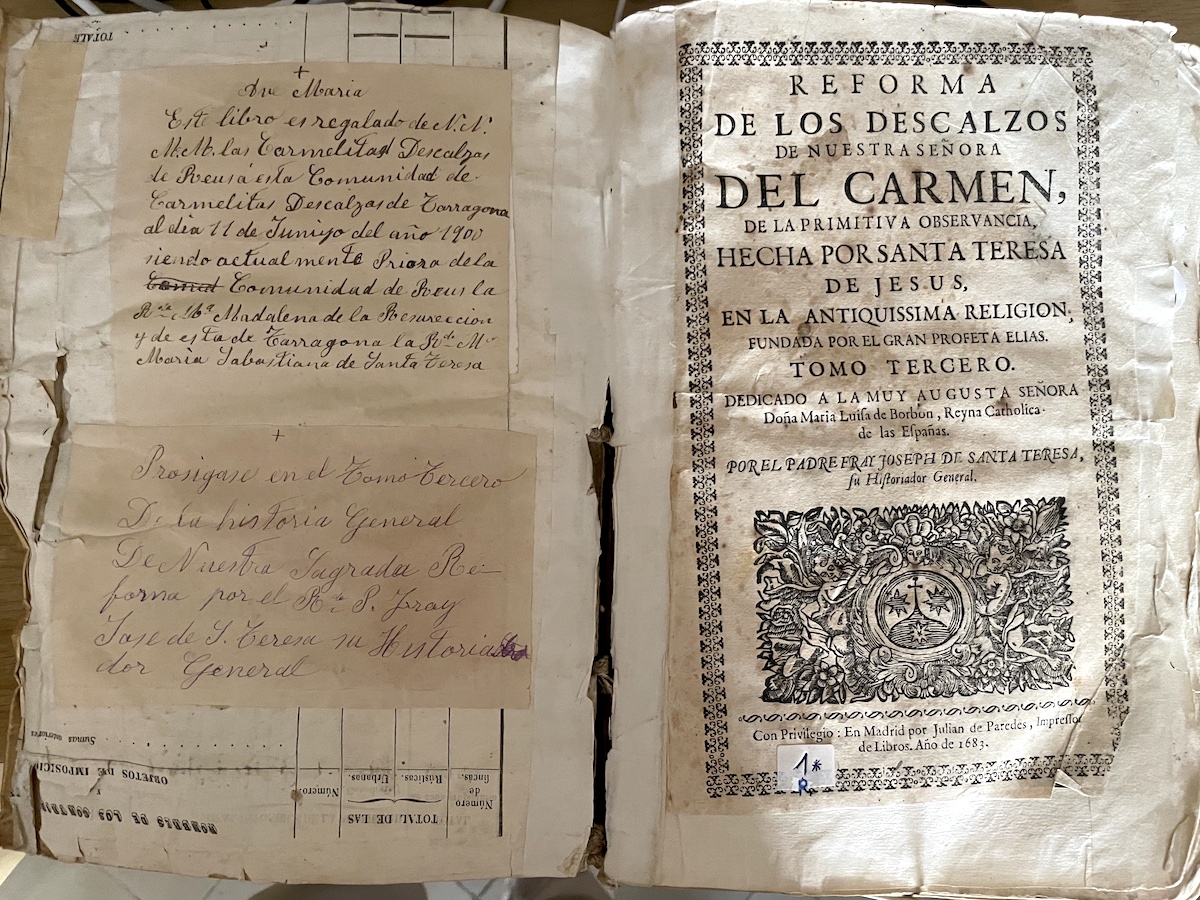 TOTALE
+
Ave Maria
Este libro es regalado de N. N.
M.M. las Carmelitas Descalzas
de Reus á esta Comunidad de
Carmelitas Descalzas de Tarragona
al dia 11 de Juniyo del año 1900
siendo actualmente Priora de la
Comunidad de Reus la
Rda Ma Madalena de la Resureccion
y de esta de Tarragona la Rda Me
Maria Sabastiana de Santa Teresa
+
Prosigase en el Tomo tercero
De la historia General
De Nuestra Sagrada Re-
forma por el Rdo P. Fray
Jose de S. Teresa su Historia
dor General
Sumas anteriores
OBJETOS DE IMPOSICI
NOMBRES DE LOS CONTRI
Número.
TOTAL DE LAS
Rústicas. Urbanas.
Número
de
fincas.
REFORMA
DE LOS DESCALZOS
DE NUESTRA SEÑORA
DEL CARMEN,
DE LA PRIMITIVA OBSERVANCIA,
HECHA POR SANTA TERESA
DE JESUS,
EN LA ANTIQUISSIMA RELIGION,
FUNDADA POR EL GRAN PROFETA ELIAS.
TOMO TERCERO.
DEDICADO A LA MUY AUGUSTA SEÑORA
Doña Maria Luisa de Borbon, Reyna Catholica
de las Españas.
POR EL PADRE FRAY JOSEPH DE SANTA TERESA,
su Historiador General.
Con Privilegio: En Madrid por Julian de Paredes, Impressor
de Libros. Año de 1683.
1*
R.